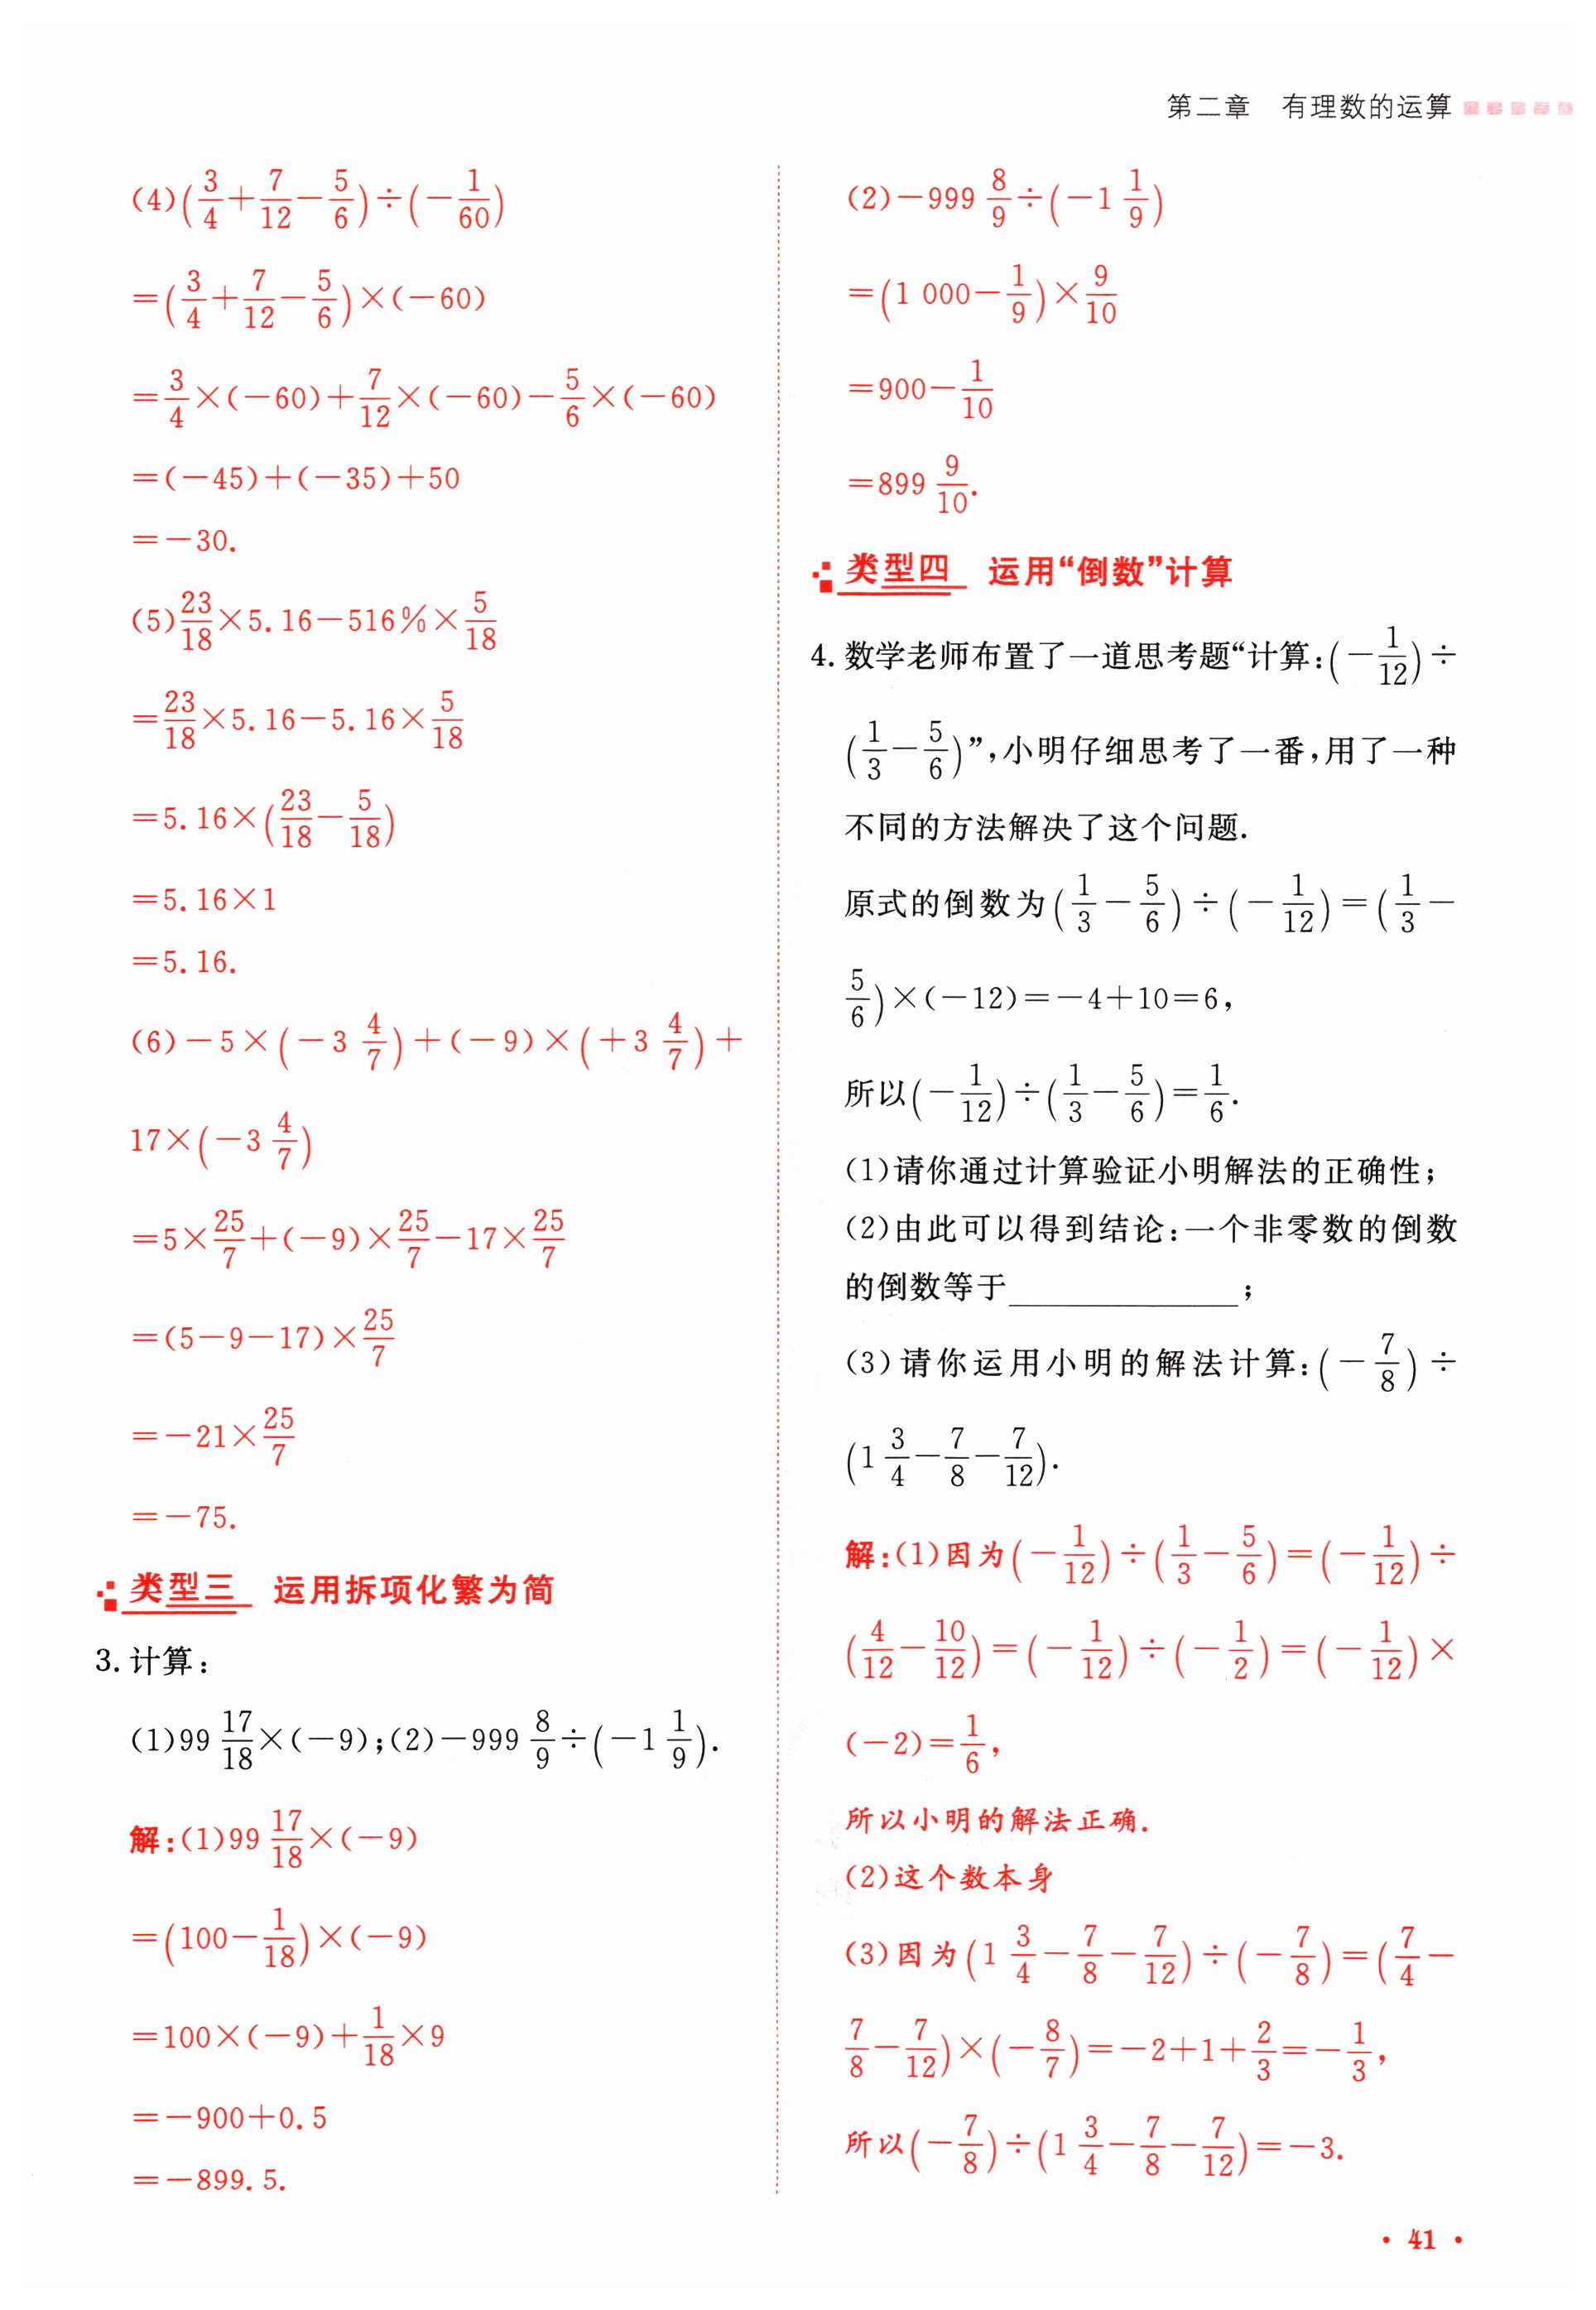 第二章　有理数的运算
(4)(3/4+7/12-5/6)÷(-1/60)
=(3/4+7/12-5/6)×(-60)
=3/4×(-60)+7/12×(-60)-5/6×(-60)
=(-45)+(-35)+50
=-30.
(5)23/18×5.16-516%×5/18
=23/18×5.16-5.16×5/18
=5.16×(23/18-5/18)
=5.16×1
=5.16.
(6)-5×(-3 4/7)+(-9)×(+3 4/7)+
17×(-3 4/7)
=5×25/7+(-9)×25/7-17×25/7
=(5-9-17)×25/7
=-21×25/7
=-75.
类型三　运用拆项化繁为简
3.计算：
(1)99 17/18×(-9);(2)-999 8/9÷(-1 1/9).
解:(1)99 17/18×(-9)
=(100-1/18)×(-9)
=100×(-9)+1/18×9
=-900+0.5
=-899.5.
(2)-999 8/9÷(-1 1/9)
=(1 000-1/9)×9/10
=900-1/10
=899 9/10.
类型四　运用“倒数”计算
4.数学老师布置了一道思考题“计算:(-1/12)÷
(1/3-5/6)”,小明仔细思考了一番,用了一种
不同的方法解决了这个问题.
原式的倒数为(1/3-5/6)÷(-1/12)=(1/3-
5/6)×(-12)=-4+10=6,
所以(-1/12)÷(1/3-5/6)=1/6.
(1)请你通过计算验证小明解法的正确性;
(2)由此可以得到结论:一个非零数的倒数
的倒数等于______________;
(3)请你运用小明的解法计算:(-7/8)÷
(1 3/4-7/8-7/12).
解:(1)因为(-1/12)÷(1/3-5/6)=(-1/12)÷
(4/12-10/12)=(-1/12)÷(-1/2)=(-1/12)×
(-2)=1/6,
所以小明的解法正确.
(2)这个数本身
(3)因为(1 3/4-7/8-7/12)÷(-7/8)=(7/4-
7/8-7/12)×(-8/7)=-2+1+2/3=-1/3,
所以(-7/8)÷(1 3/4-7/8-7/12)=-3.
·41·